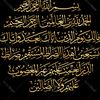 بسم الله الرحمن الرحيم
الحمد لله رب العالمين الرحمن الرحيم
مالك يوم الدين إياك نعبد وإياك
نستعين اهدنا الصراط المستقيم صراط
الذين أنعمت عليهم غير المغضوب
عليهم ولا الضالين